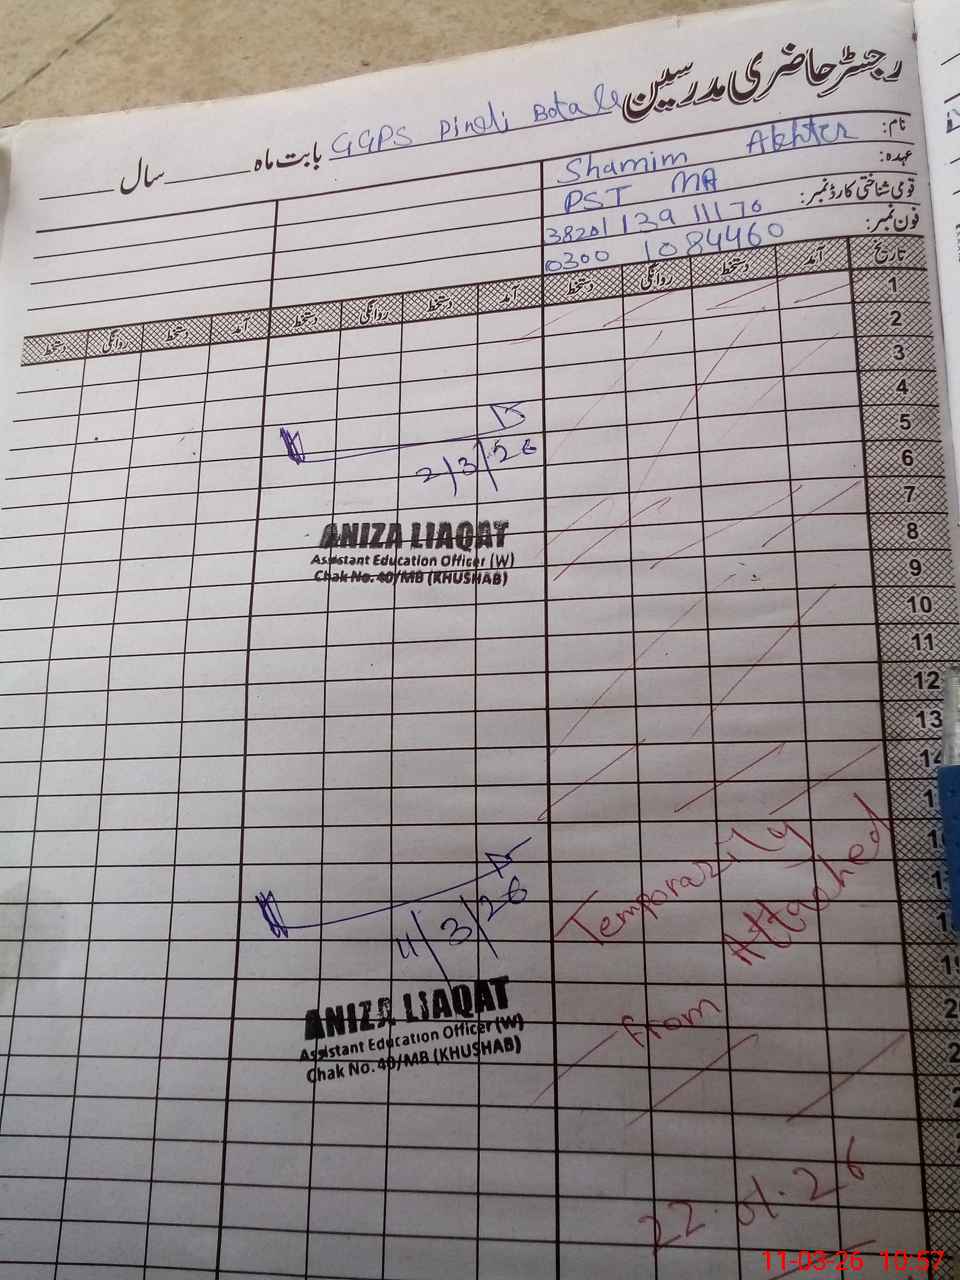 رجسٹر حاضری مدرسین
بابت ماہ GGPS Pindi Botala سال
نام: Shamim Akhter
عہدہ: PST MA
قومی شناختی کارڈ نمبر: 38201 139 11170
فون نمبر: 0300 1084460
تاریخ آمد دستخط روانگی دستخط آمد دستخط روانگی دستخط آمد دستخط روانگی دستخط
1
2
3
4
5
6
2/3/26
7
8
ANIZA LIAQAT
Assistant Education Officer (W)
Chak No. 40/MB (KHUSHAB)
9
10
11
12
13
14
Temporazily
Attached
11/3/26
19
ANIZA LIAQAT
Assistant Education Officer (W)
Chak No. 40/MB (KHUSHAB)
From
22.01.26
11-03-26 10:57